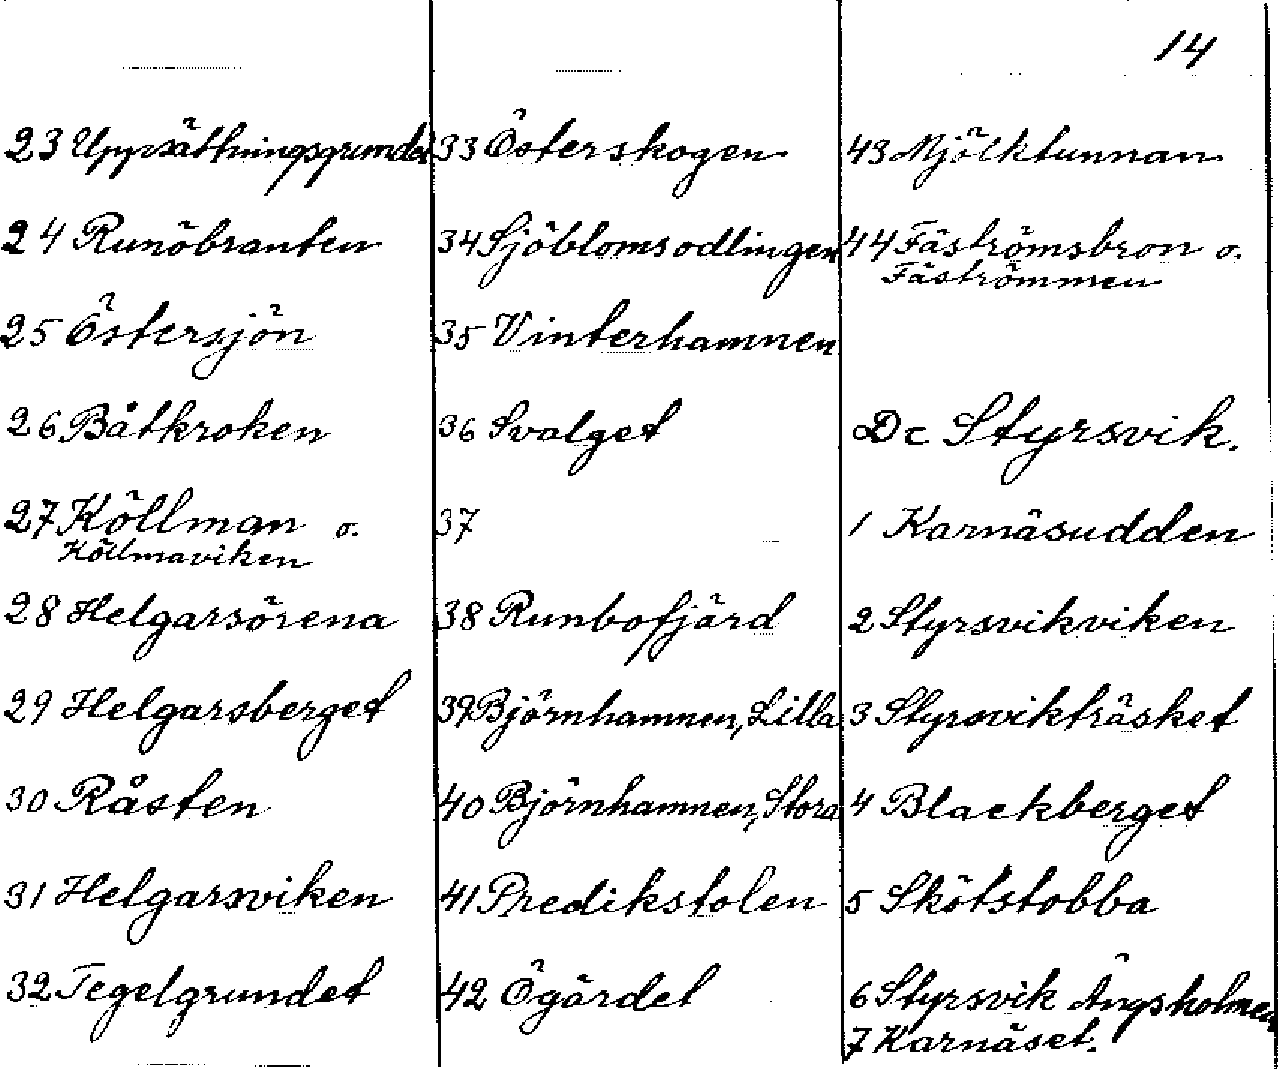 14
23 Uppsättningsgrundet
24 Runöbranten
25 Östersjön
26 Båtkroken
27 Köllman o.
Köllmaviken
28 Helgarsörena
29 Helgarsberget
30 Råsten
31 Helgarsviken
32 Tegelgrundet
33 Österskogen
34 Sjöblomsodlingen
35 Vinterhamnen
36 Svalget
37
38 Runbofjärd
39 Björnhamnen, Lilla
40 Björnhamnen, Stora
41 Predikstolen
42 Ögärdet
43 Mjölktunnan
44 Fäströmsbron o.
Fäströmmen
Dc Styrsvik.
1 Karnäsudden
2 Styrsvikviken
3 Styrsvikträsket
4 Blackberget
5 Skötstobba
6 Styrsvik Ängsholmen
7 Karnäset.